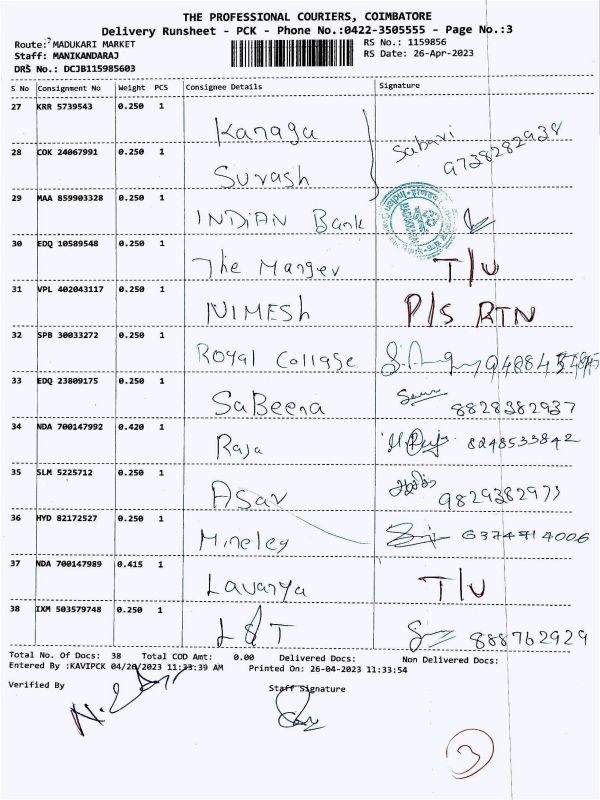 THE PROFESSIONAL COURIERS, COIMBATORE
Delivery Runsheet - PCK - Phone No.:0422-3505555 - Page No.:3
Route: MADUKARI MARKET RS No.: 1159856
Staff: MANIKANDARAJ RS Date: 26-Apr-2023
DRS No.: DCJB115985603
S No Consignment No Weight PCS Consignee Details Signature
27 KRR 5739543 0.250 1 Kanaga
Sabari 9738282938
28 COK 24067991 0.250 1 Surash
29 MAA 859903328 0.250 1 INDIAN Bank
30 EDQ 10589548 0.250 1 The Manger T/U
31 VPL 402043117 0.250 1 NIMESh P/S RTN
32 SPB 30033272 0.250 1 ROYAL Collage
33 EDQ 23809175 0.250 1 SaBeena 8828382937
34 NDA 700147992 0.420 1 Raja 8248533842
35 SLM 5225712 0.250 1 Asar 9829382973
36 HYD 82172527 0.250 1
37 NDA 700147989 0.415 1 Lavanya T/U
38 IXM 503579748 0.250 1 L&T 888762929
Total No. Of Docs: 38 Total COD Amt: 0.00 Delivered Docs: Non Delivered Docs:
Entered By :KAVIPCK 04/26/2023 11:33:39 AM Printed On: 26-04-2023 11:33:54
Verified By Staff Signature
3